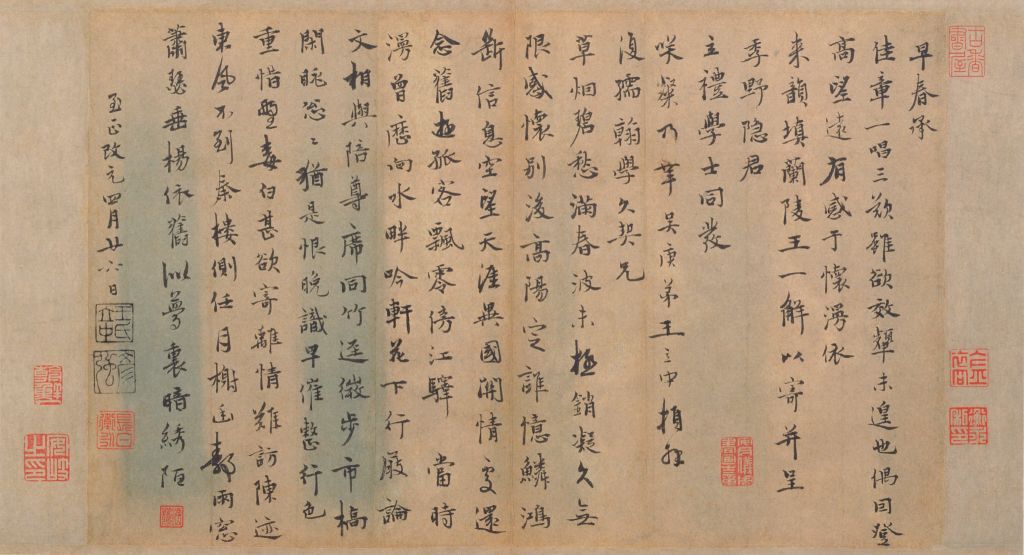 早春承
佳章一唱三歎雖欲效顰未遑也偶因登
高望遠有感于懷漫依
来韻填蘭陵王一解以寄并呈
季野隐君
主禮學士同發
咲粲乃幸吳庚弟王立中頓首
復孺翰學久契兄
草烟碧愁滿春波未極銷凝久無
限感懷别後高陽定誰憶鱗鴻
斷信息空望天涯異國關情處還
念舊遊孤客飄零傍江驛當時
漫曾歴向水畔吟軒花下行屐論
文相與陪尊席同竹逕微步市橋
閑眺怱〻猶是恨晚識早催整行色
重惜鬢毒白甚欲寄離情難訪陳迹
東風不到秦樓側任月榭連鄰雨窓
蕭瑟垂楊依舊似夢裏暗綉陌
至正改元四月廿六日
王氏
彦強